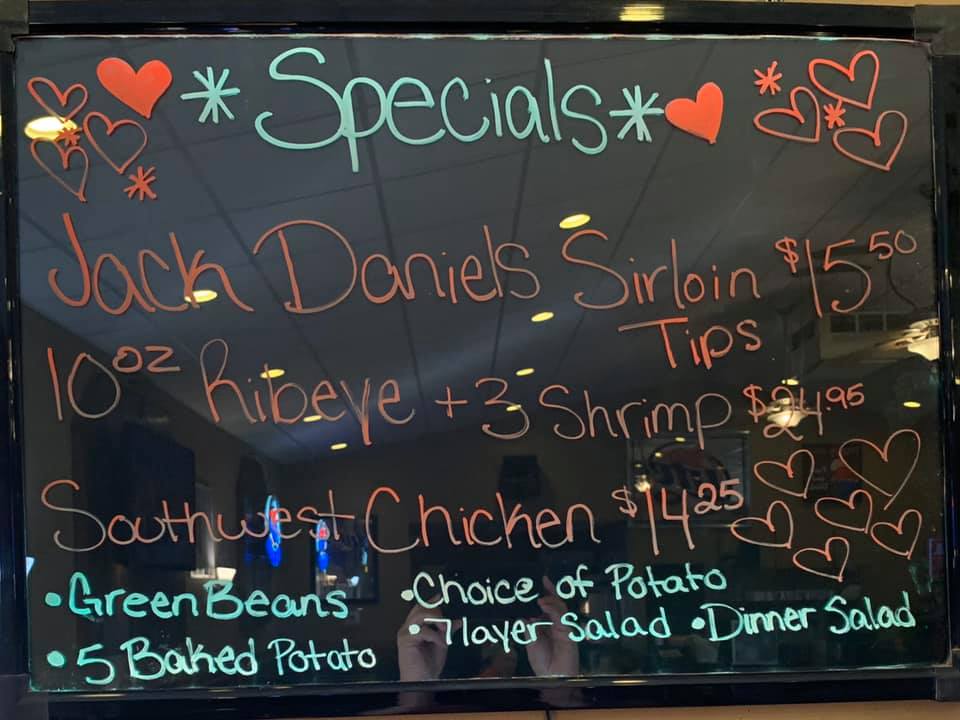 *Specials*
Jack Daniels Sirloin $15.50
Tips
10oz Ribeye + 3 Shrimp $24.95
Southwest Chicken $14.25
•Green Beans •Choice of Potato
•7 layer Salad •Dinner Salad
•5 Baked Potato